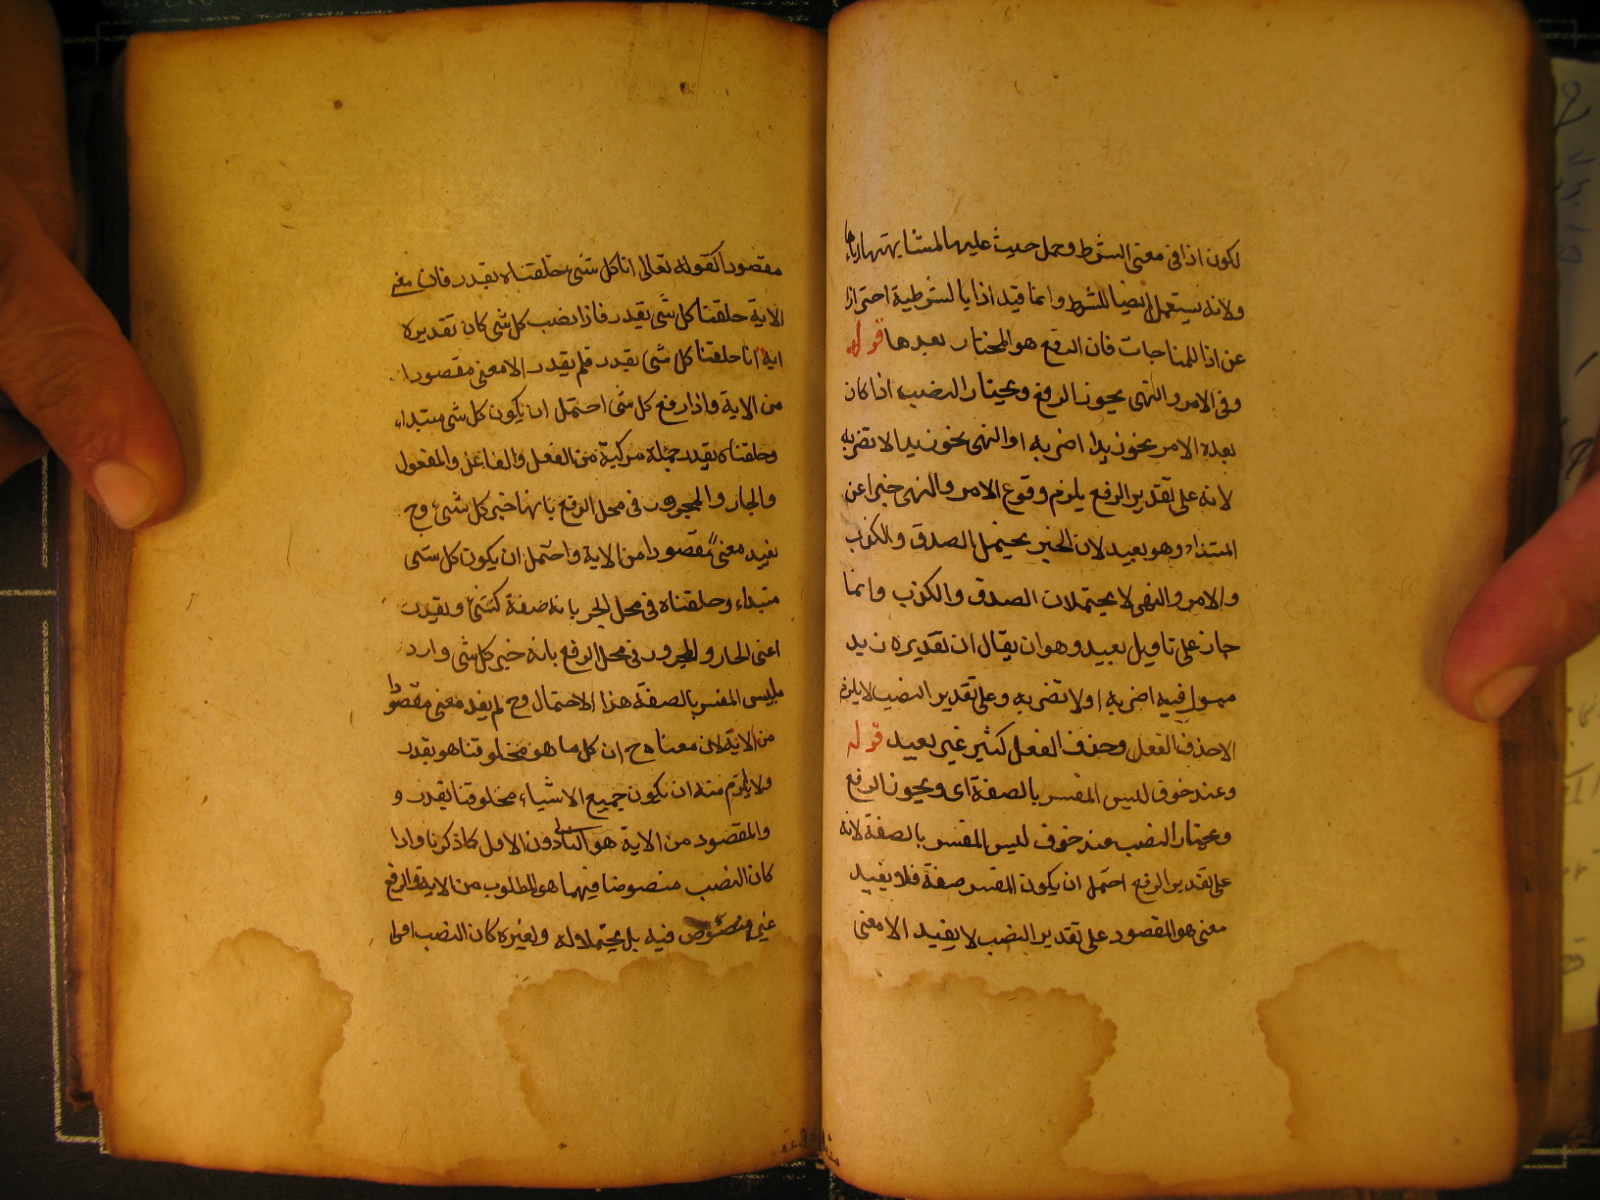 لكون اذا في معنى الشرط وحمل حيث عليها لمشابهتها اياها
ولانه يستعمل ايضا للشرط وانما قيد اذا بالشرطية احترازا
عن اذا للمفاجات فان الرفع هو المختار بعدها قوله
وفي الامر والنهى يجوز الرفع ويختار النصب اذا كان
بعده الامر نحو زيدا اضربه او النهى نحو زيدا لا تضربه
لانه على تقدير الرفع يلزم وقوع الامر والنهى خبرا عن
المبتداء وهو بعيد لان الخبر يحتمل الصدق والكذب
والامر والنهى لا يحتملان الصدق والكذب وانما
جاز على تاويل بعيد وهو ان يقال ان تقديره زيد
مقول فيه اضربه او لا تضربه وعلى تقدير النصب لا يلزم
الا حذف الفعل وحذف الفعل كثير غير بعيد قوله
وعند خوف لبس المفسر بالصفة اى ويجوز الرفع
ويختار النصب عند خوف لبس المفسر بالصفة لانه
على تقدير الرفع احتمل ان يكون المفسر صفة فلا يفيد
معنى هو المقصود على تقدير النصب لا يفيد الا معنى
مقصودا كقوله تعالى انا كل شئ خلقناه بقدر فان معنى
الاية خلقنا كل شى بقدر فاذا نصب كل شى كان تقديره
اية انا خلقنا كل شى بقدر فلم يفد الا معنى مقصودا
من الاية واذا رفع كل شى احتمل ان يكون كل شى مبتداء
وخلقناه بقدر جملة مركبة من الفعل والفاعل والمفعول
والجار والمجرور في محل الرفع بانها خبر كل شئ وح
يفيد معنى مقصودا من الاية واحتمل ان يكون كل شى
مبتداء وخلقناه في محل الجر بانه صفة لشئ وبقدر
اعنى الجار والمجرور في محل الرفع بانه خبر كل شى واراد
بلبس المفسر بالصفة هذا الاحتمال وح لم يفد معنى مقصودا
من الاية لان معناه ح ان كل ما هو مخلوقنا هو بقدر
ولا يلزم منه ان يكون جميع الاشياء مخلوقنا بقدر و
والمقصود من الاية هو الثانى دون الاول كما ذكرنا واذا
كان النصب منصوصا فيهما هو المطلوب من الاية والرفع
غير منصوص فيه بل محتملا له ولغيره كان النصب اولى